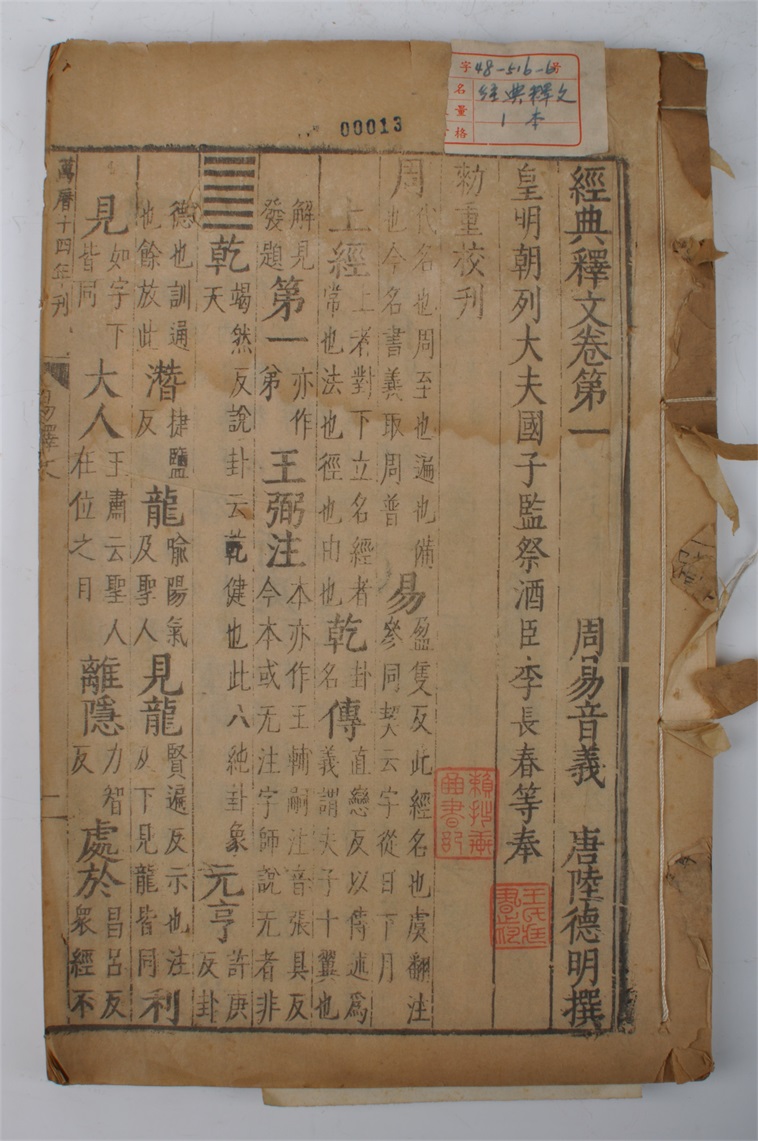 字48-516-6号
名 經典釋文
量 1本
格
00013
經典釋文卷第一 周易音義 唐陸德明撰
皇明朝列大夫國子監祭酒臣李長春等奉
勅重校刋
周代名也周至也遍也備也今名書義取周普易盈隻反此經名也虞翻注參同契云字從日下月
上經上者對下立名經者常也法也徑也由也乾卦名傳直戀反以傳述爲義謂夫子十翼也
解見發題第一亦作弟王弼注本亦作王輔嗣注音張具反今本或无注字師說无者非
䷀乾竭然反說卦云乾健也此八純卦象天元亨許庚反卦
德也訓通也餘放此潛捷鹽反龍喻陽氣及聖人見龍賢遍反示也注及下見龍皆同利
見如字下皆同大人王肅云聖人在位之目離隱力智反處於昌呂反衆經不
萬曆十四年刋
易釋文
二